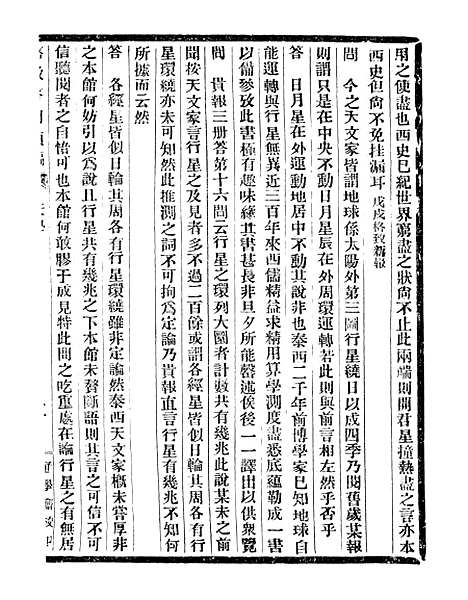 用之使盡也西史已紀世界窮盡之狀尙不止此兩端則開君星撞熱盡之言亦本
西史但尙不免挂漏耳 戊戌格致新報
問 今之天文家皆謂地球係太陽外第三圜行星繞日以成四季乃閱舊歲某報
則謂只是在中央不動日月星辰在外周環運轉若此則與前言相左然乎否乎
答 日月星在外運動地居中不動其說非也泰西二千年前博學家已知地球自
能運轉與行星無異近三百年來西儒精益求精用算學測度盡悉底蘊勒成一書
以備參致此書極有趣味緣其書甚長非旦夕所能罄述俟後一一譯出以供衆覽
問 貴報三册答第十六問云行星之環列大圜者計數共有幾兆此說某未之前
聞按天文家言行星之及見者多不過二百餘或謂各經星皆似日輪其周各有行
星環繞亦未可知然此推測之詞不可拘爲定論乃貴報直言行星有幾兆不知何
所據而云然
答 各經星皆似日輪其周各有行星環繞雖非定論然泰西天文家槪未嘗厚非
之本館何妨引以爲說且行星共有幾兆之下本館未贅斷語則其言之可信不可
信聽閱者之自怡可也本館何敢膠于成見特此問之吃重處在論行星之有無居